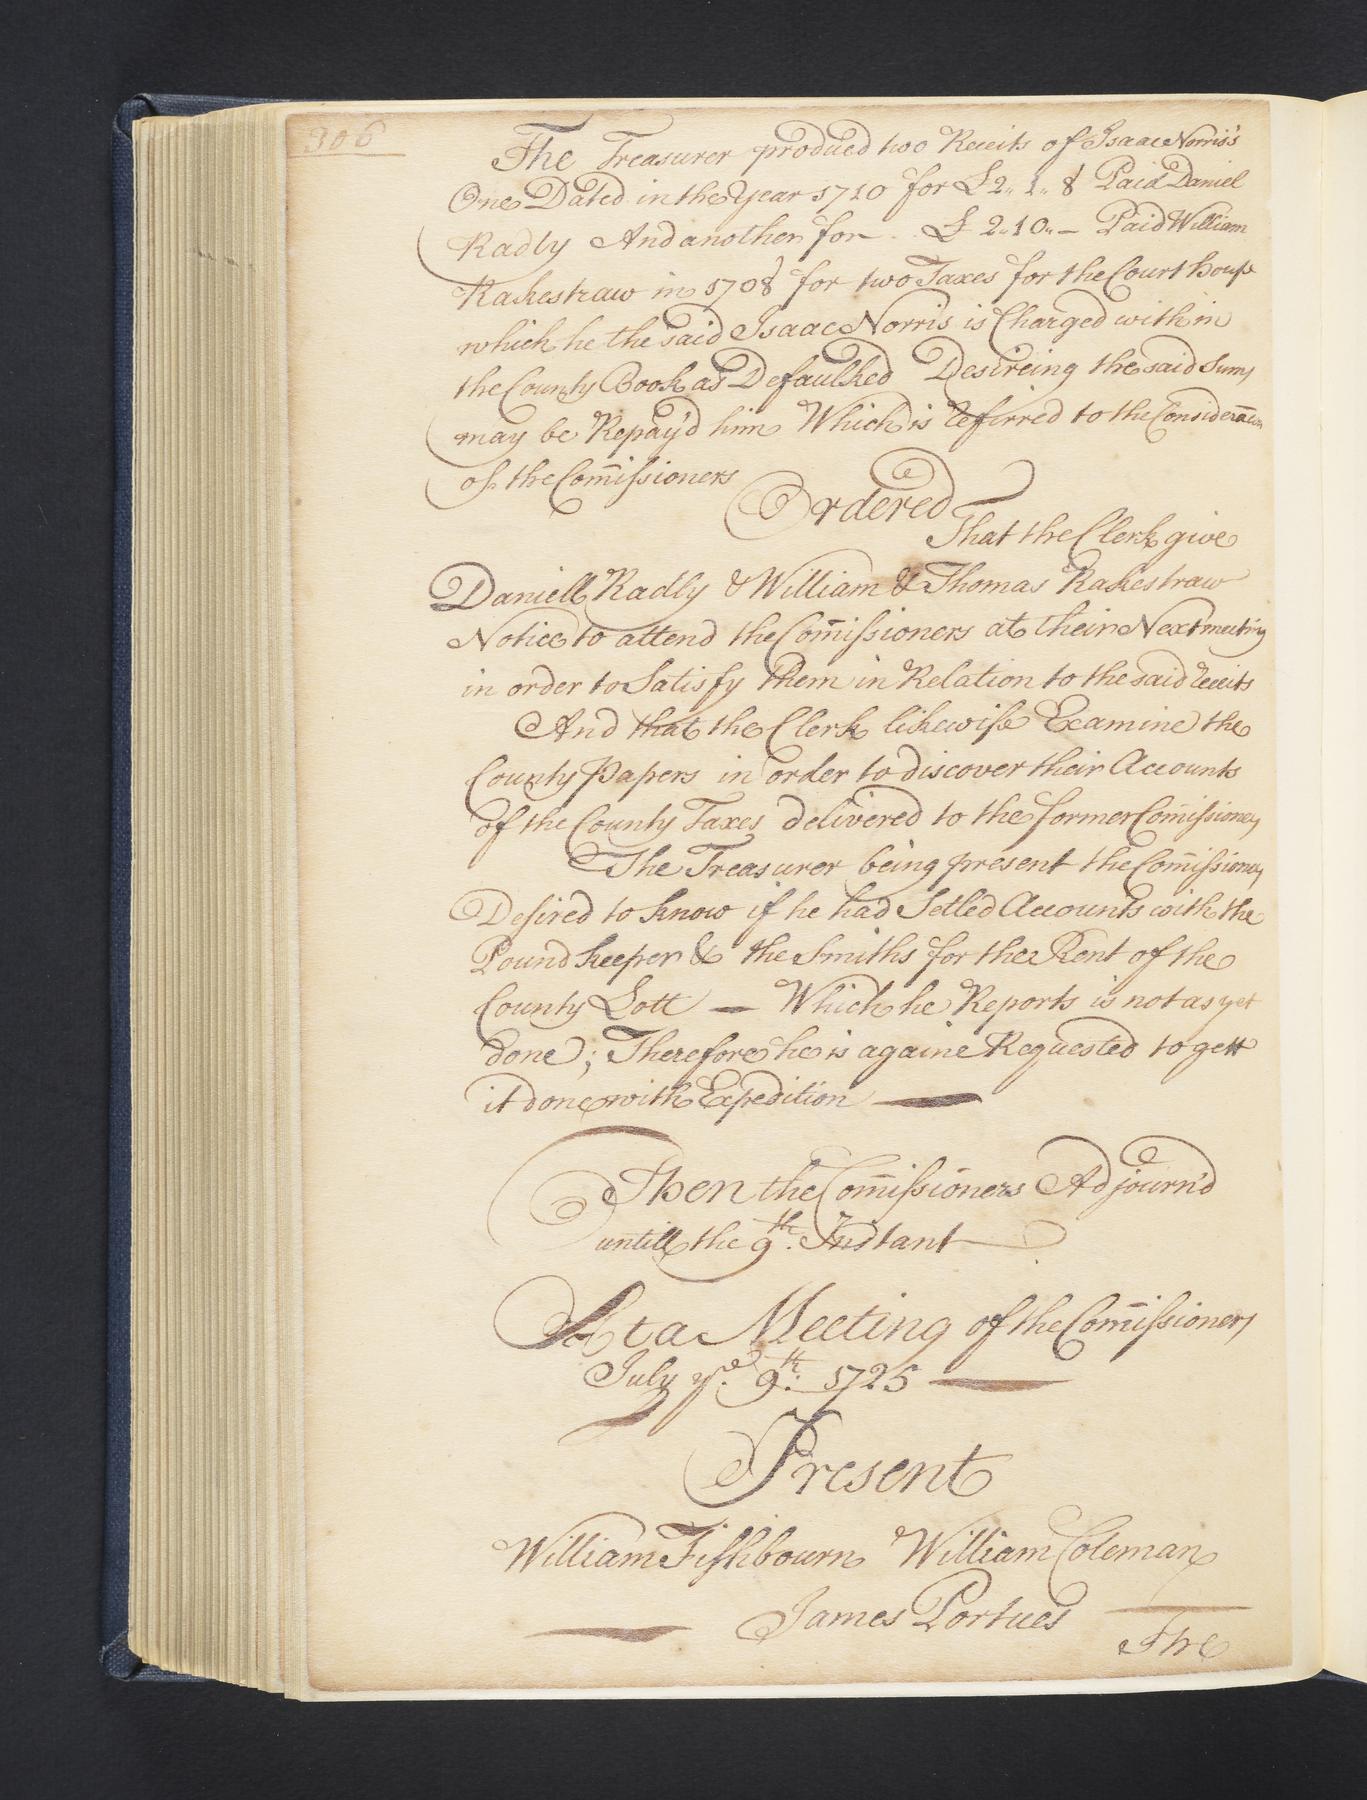 306
The Treasurer produced two Receits of Isaac Norris's
One Dated in the Year 1710 for £2,, 1,, 8 Paid Daniel
Radly And another for £ 2,,10,,– Paid William
Rakestraw in 1708 for two Taxes for the Court house
which he the said Isaac Norris is Charged with in
the County Book as Defaulked Desireing the said Sums
may be Repay'd him Which is referred to the Consideracon
of the Com̄issioners
Ordered
That the Clerk give
Daniell Radly & William & Thomas Rakestraw
Notice to attend the Com̄issioners at their Next meeting
in order to Satisfy them in Relation to the said receits
And that the Clerk likewise Examine the
County Papers in order to discover their Accounts
of the County Taxes delivered to the former Com̄issioners
The Treasurer being present the Com̄issioners
Desired to know if he had Setled Accounts with the
Pound keeper & the Smiths for the Rent of the
County Lott — Which he Reports is not as yet
done; Therefore he is againe Requested to gett
it done with Expedition —
Then the Com̄issioners Adjourn'd
untill the 9th. Instant
At a Meeting of the Com̄issioners
July ye. 9th: 1725 —
Present
William Fishbourn William Coleman
James Portues
The